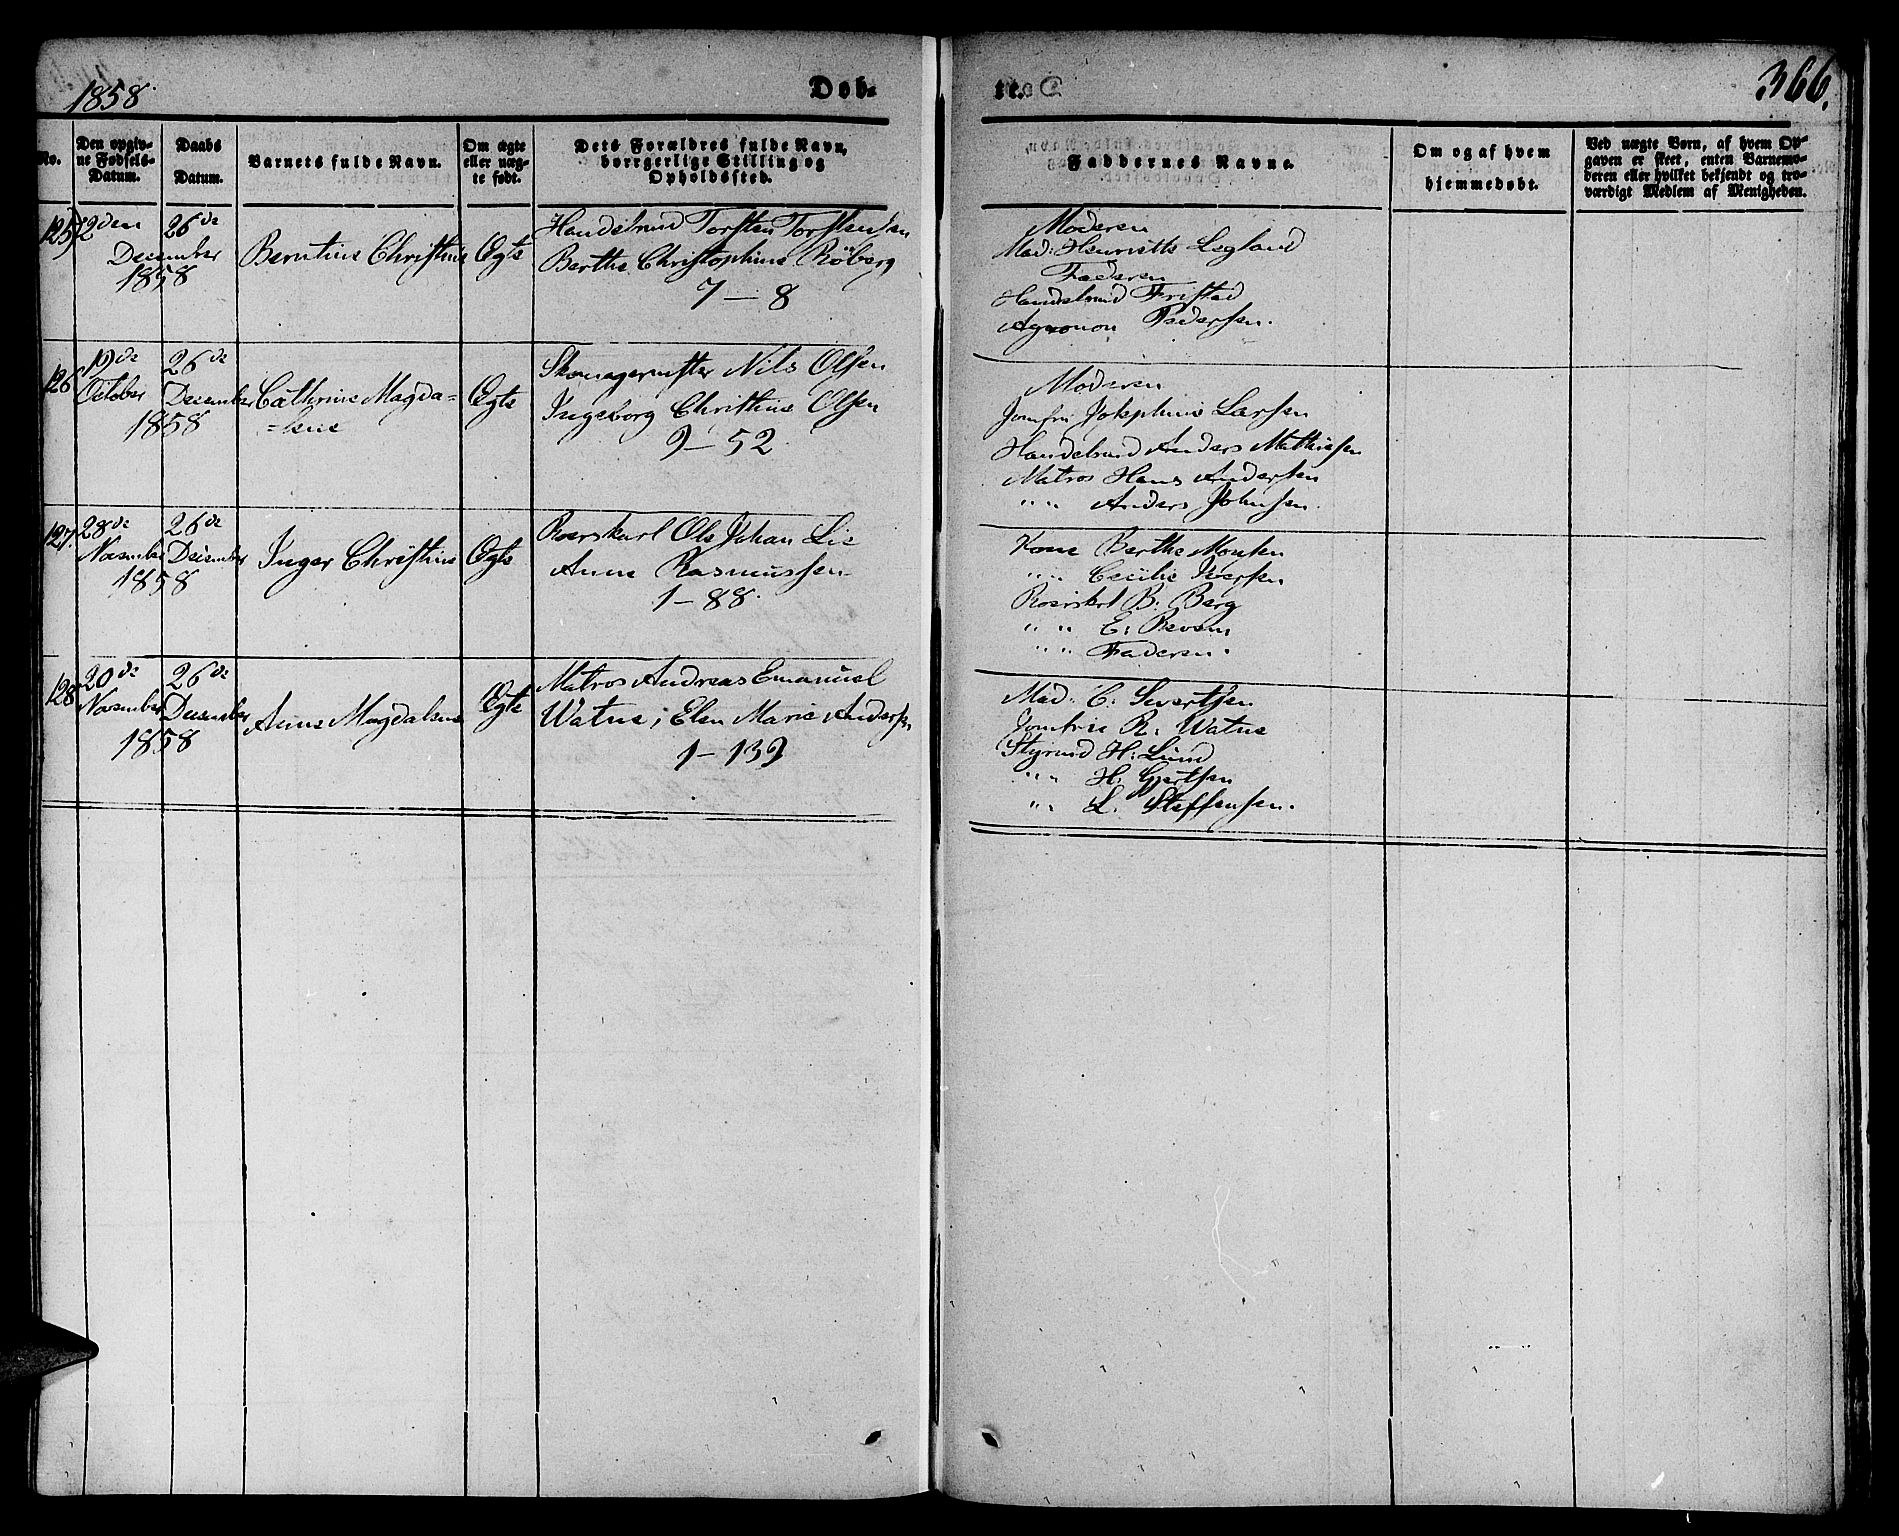 1858.
Døb-
te.
366.
No.
Den opgiv-
ne Fødsels-
Datum.
Daabs
Datum.
Barnets fulde Navn.
Om ægte
eller uæg-
te født.
Dets Forældres fulde Navn,
borrgerlige Stilling og
Opholdssted.
Faddernes Navne.
Om og af hvem
hjemmedøbt.
Ved uægte Børn, af hvem Op-
gaven er skeet, enten Barnemo-
deren eller hvilket bekjendt og tro-
værdigt Medlem af Menigheden.
125
2den
December
1858
26de
Berntine Christine
Ægte
Handelsmd Torsten Torstensen
Berthe Christophine Röberg
7 – 8
Moderen
Mad: Henriette Legland
Faderen
Handelsmd Fristad
Agronon Pedersen.
126
19de
October
1858
26de
December
Cathrine Magda=
=lene
Ægte
Skomagermester Nils Olsen
Ingeborg Christine Olsen
9 – 52
Moderen
Jomfru Josephine Larsen
Handelsmd Anders Mathiesen
Matros Hans Andersen
" " Anders Johnsen.
127.
28de
November
1858
26de
December
Inger Christine
Ægte
Roerskarl Ole Johan Lie
Anne Rasmussen
1 – 88.
Kone Berthe Monsen
" " Cecilie Iversen
Roerskrl B: Berg
" " E:
" " Faderen.
128
20de
November
1858
26de
December
Anne Magdalene
Ægte
Matros Andreas Emanuel
Watne; Elen Marie Andersen
1 – 139
Mad: C: Sivertsen
Jomfrue R. Watne
Styrmd H: Lund
" " H: Gjertsen
" L. Steffensen.